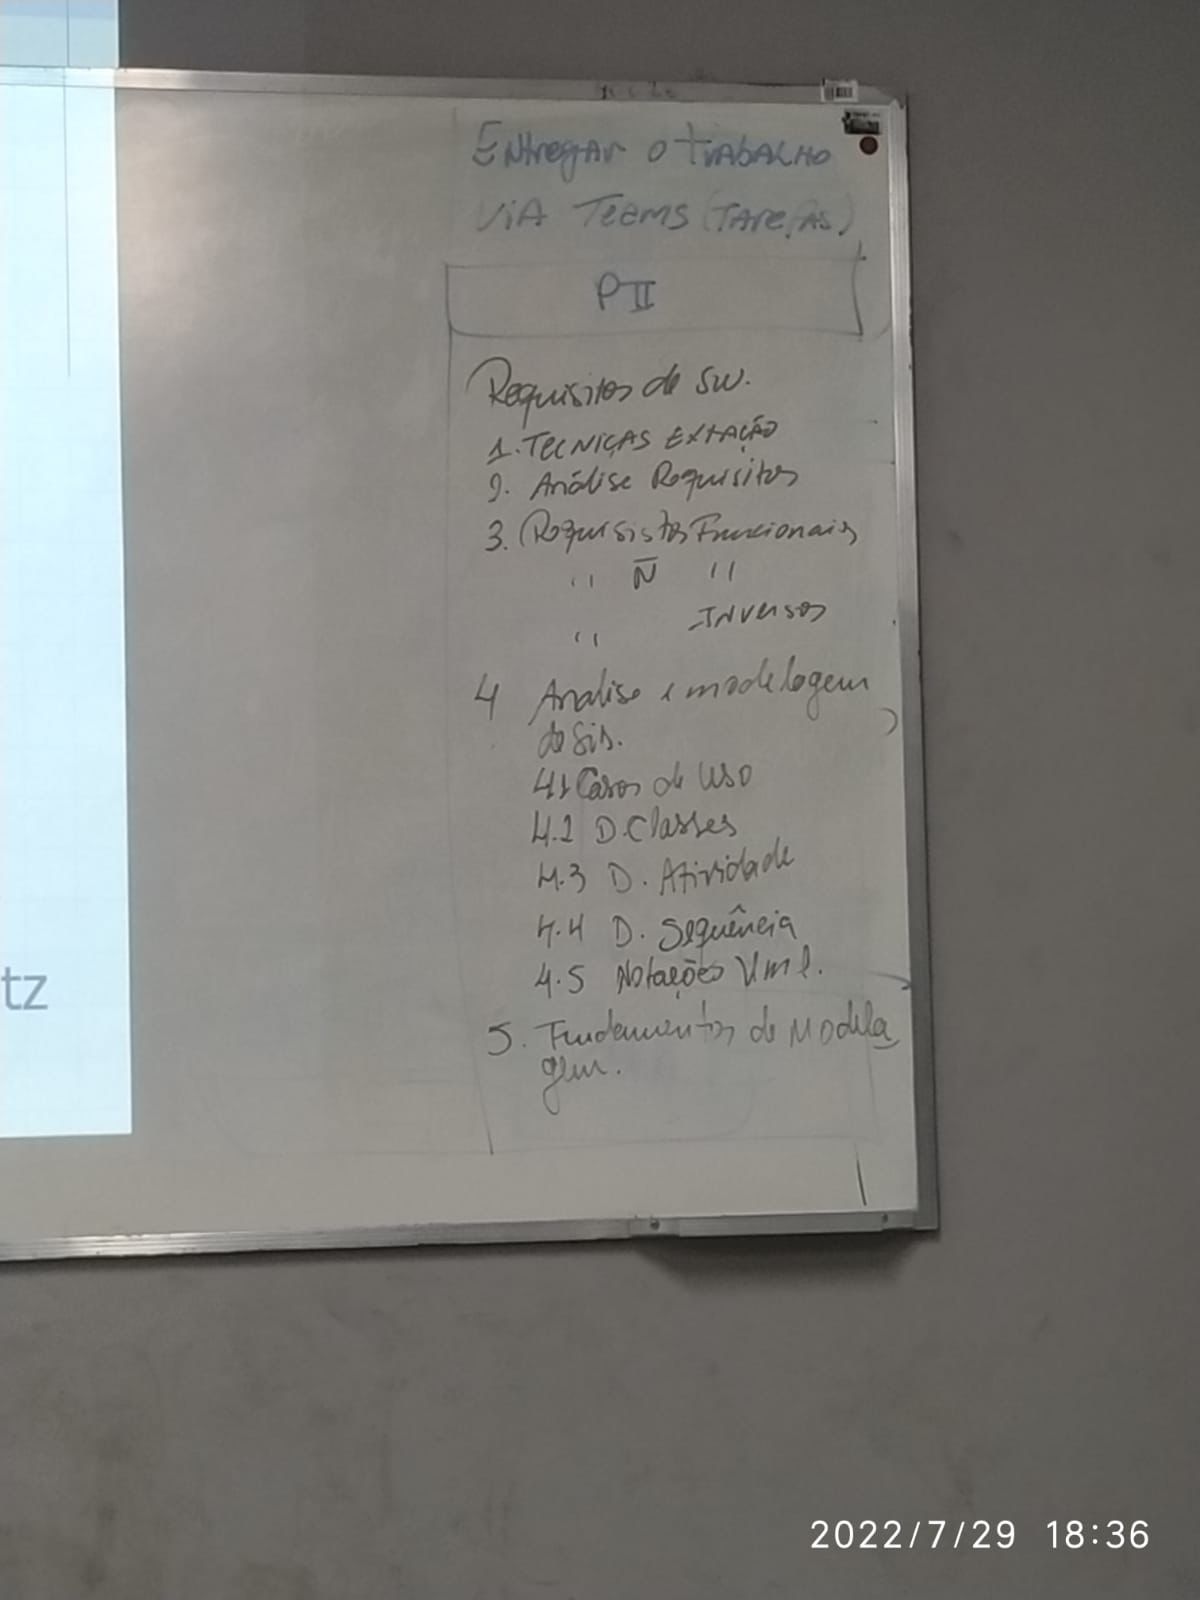 Entregar o trabalho
via Teems (Tarefas)
PII
Requisitos de SW.
1. Tecniças Extação
2. Análise Requisitos
3. Requisistos Funcionais
" Ñ "
" Inversos
4 Analise e modelagem
de Sis.
4.1 Casos de Uso
4.2 D. Classes
4.3 D. Atividade
4.4 D. Sequência
4.5 Notações Uml.
5. Fundamentos de Modela
gem.
tz
2022/7/29 18:36